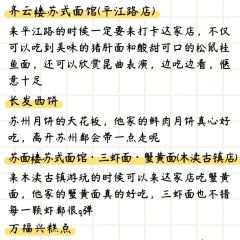 齐云楼苏式面馆(平江路店)
来平江路的时候一定要来打卡这家店，不仅
可以吃到美味的猪肝面和酸甜可口的松鼠桂
鱼面，还可以欣赏昆曲表演，边吃边看，惬
意十足
长发西饼
苏州月饼的天花板，他家的鲜肉月饼真心好
吃，离开苏州都会带一点走呢
苏面楼苏式面馆·三虾面·蟹黄面(木渎古镇店)
来木渎古镇游玩的时候可以来这家店吃蟹黄
面，他家的蟹黄面真的好吃，三虾面也不错
每一颗虾都很q弹
万福兴糕点